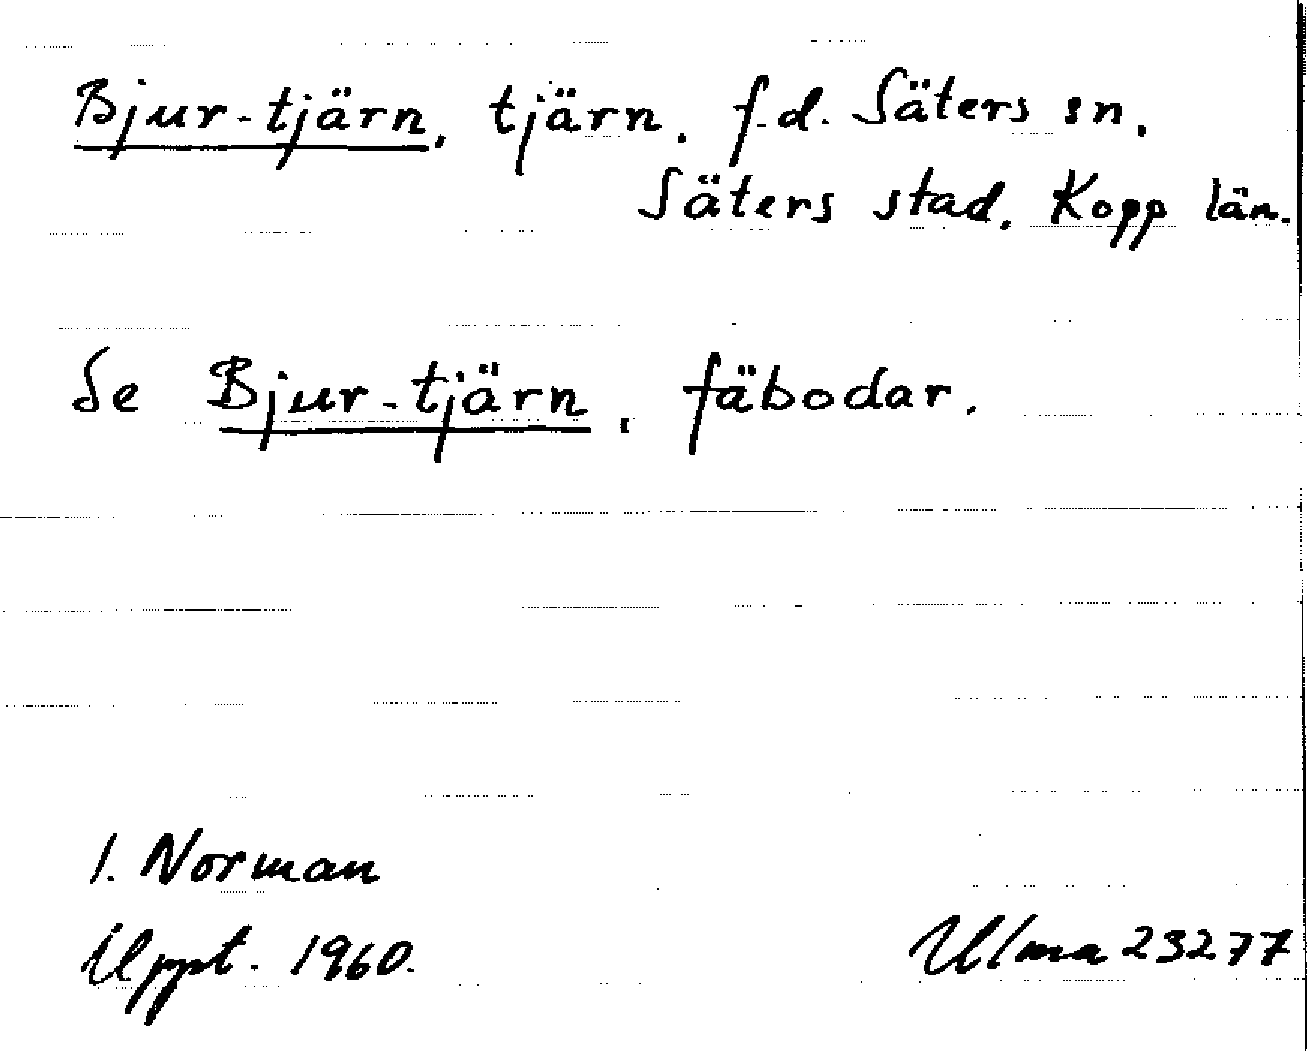 Bjur-tjärn, tjärn. f.d. Säters sn.
Säters stad. Kopp län.
Se Bjur-tjärn, fäbodar.
I. Norman
Uppt. 1960.
Ulma 23277